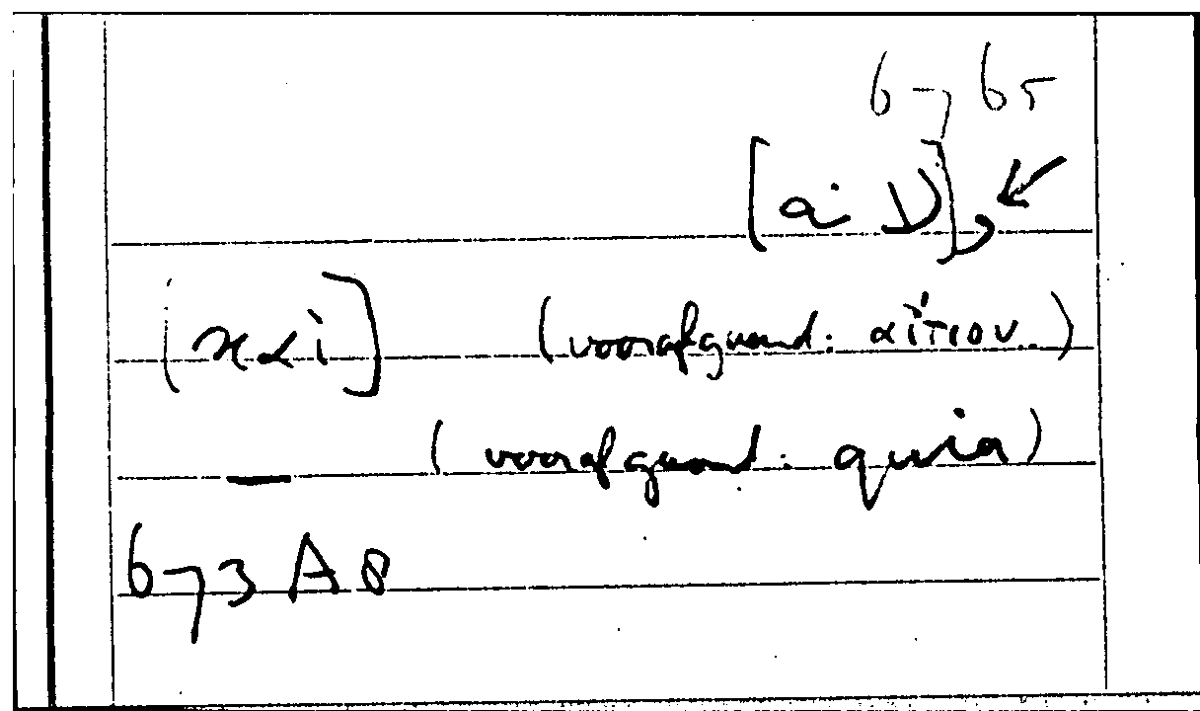 6 7 b5
[a D], ↙
[καὶ] (voorafgaand: αἴτιον)
— (voorafgaand: quia)
673 A8